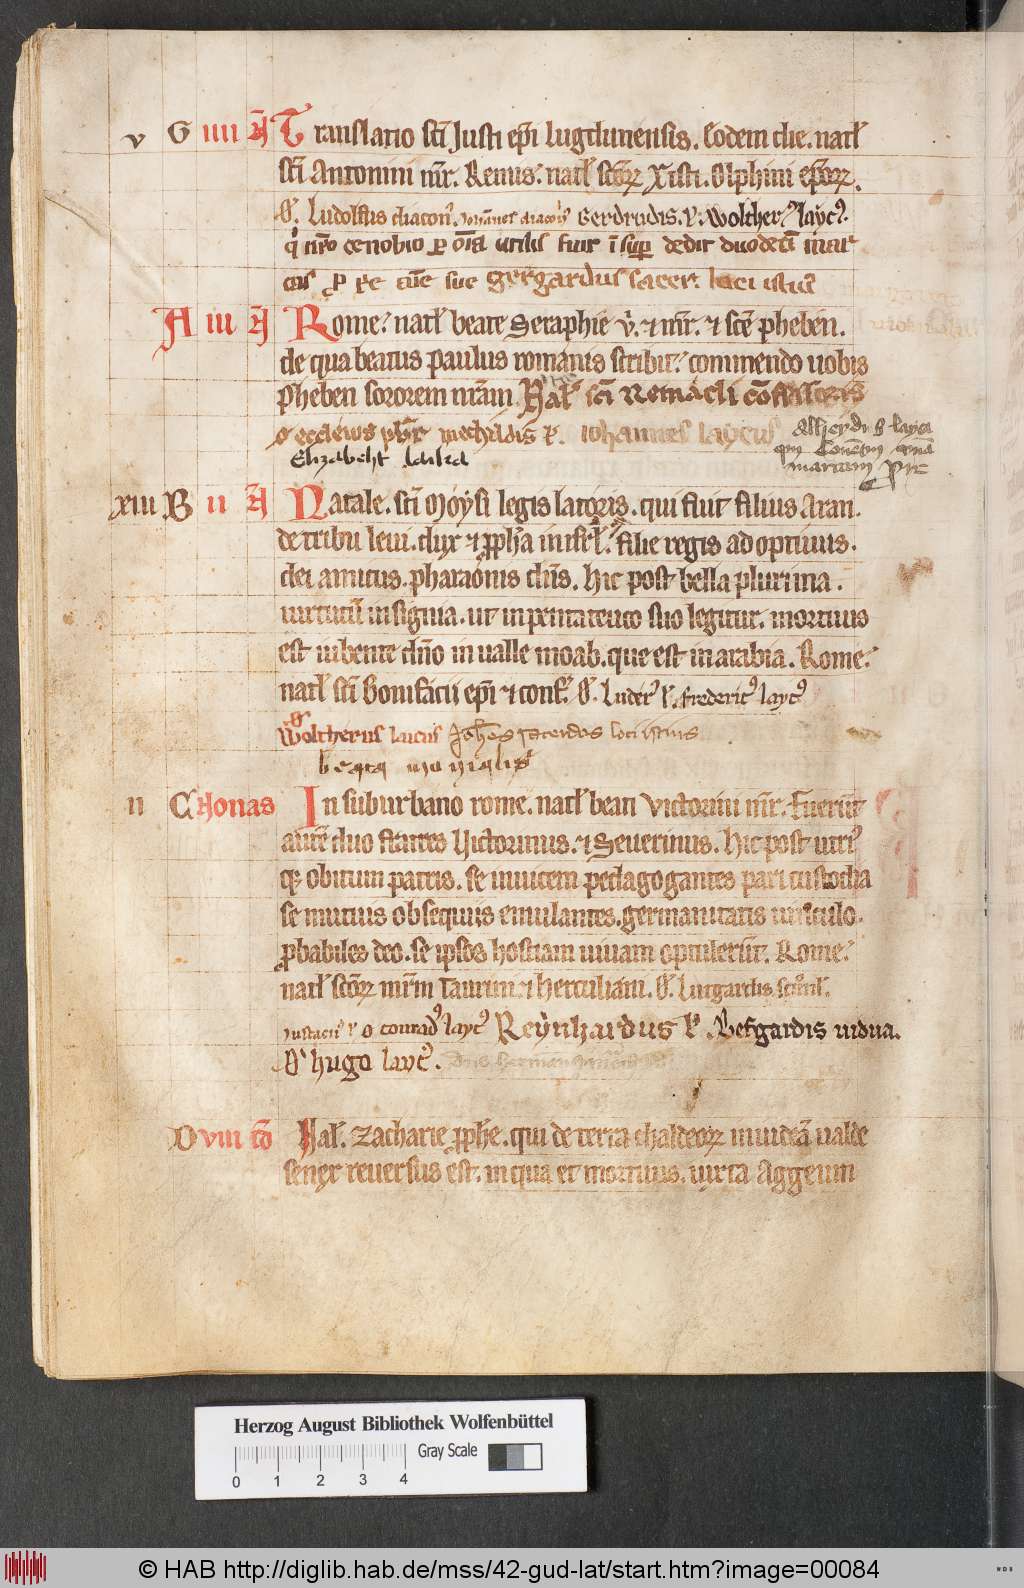 v G iiii A Translatio sc̄i Justi ep̄i lugdunensis. Eodem die. natl̄
sc̄i Antonini mr̄. Remis. natl̄ sc̄oꝝ Xisti. Olphini ep̄oꝝ.
O. Ludolfus diacon9. Johānes diacon9 Gerdrudis. l'. Wolther9 layc9.
q' nr̄o cenobio ꝑ oīa utilis fuit ī suꝑ dedit duodeci mar
cas ꝓ re cue sue gergardus sacer. loci istius
A iii A Rome. natl̄ beate Seraphie v̄. ⁊ mr̄. ⁊ sc̄e pheben.
de qua beatus paulus romanis scribit. commendo uobis
Pheben sororem nr̄am. Nat' sc̄i Remacli cōfessoris
O ecclews pbr̄ mechildis l'. Johannes laycus Alherdus layci
Elizabeht laika
marcam pre
xiii B ii A Natale. sc̄i Moysi legis latoris. qui fuit filius Aran.
de tribu leui. dux ⁊ ꝓph̄a in isrl̄. filie regis adoptiuus.
dei amicus. pharaonis dn̄s. hic post bella plurima.
uirtutū insignia. ut in pentateuco suo legitur. mortuus
est iubente dn̄o in ualle moab. que est in arabia. Rome.
natl̄ sc̄i Bonifacii ep̄i ⁊ conf̄. O. Luder9 l'. frederic9 layc9
O Woltherus lucus Joh̄es sacerdos loci istius
beata monialis
ii C Nonas In suburbano rome. natl̄ beati Victorini mr̄. Fuerūt
autē duo fratres Victorinus. ⁊ Seuerinus. Hic post utri9
qꝫ obitum patris. se inuicem pedagogantes pari custodia
se mutuis obsequiis emulantes. germanitatis uinculo.
ꝓbabiles deo. se ipsos hostiam uiuam optulerūt. Rome.
natl̄ sc̄oꝝ mr̄m Taurini. ⁊ Herculiani. O. Lutgardis
Justacii l' O conrad9 layc9 Reynhardus l'. Befgardis uidua.
O' hugo layc9.
D viii id Nat'. Zacharie ꝓphe. qui de terra chaldeoꝝ in iudeā ualde
senex reuersus est. in qua et mortuus. iuxta Aggeum
Herzog August Bibliothek Wolfenbüttel
Gray Scale
0 1 2 3 4
© HAB http://diglib.hab.de/mss/42-gud-lat/start.htm?image=00084